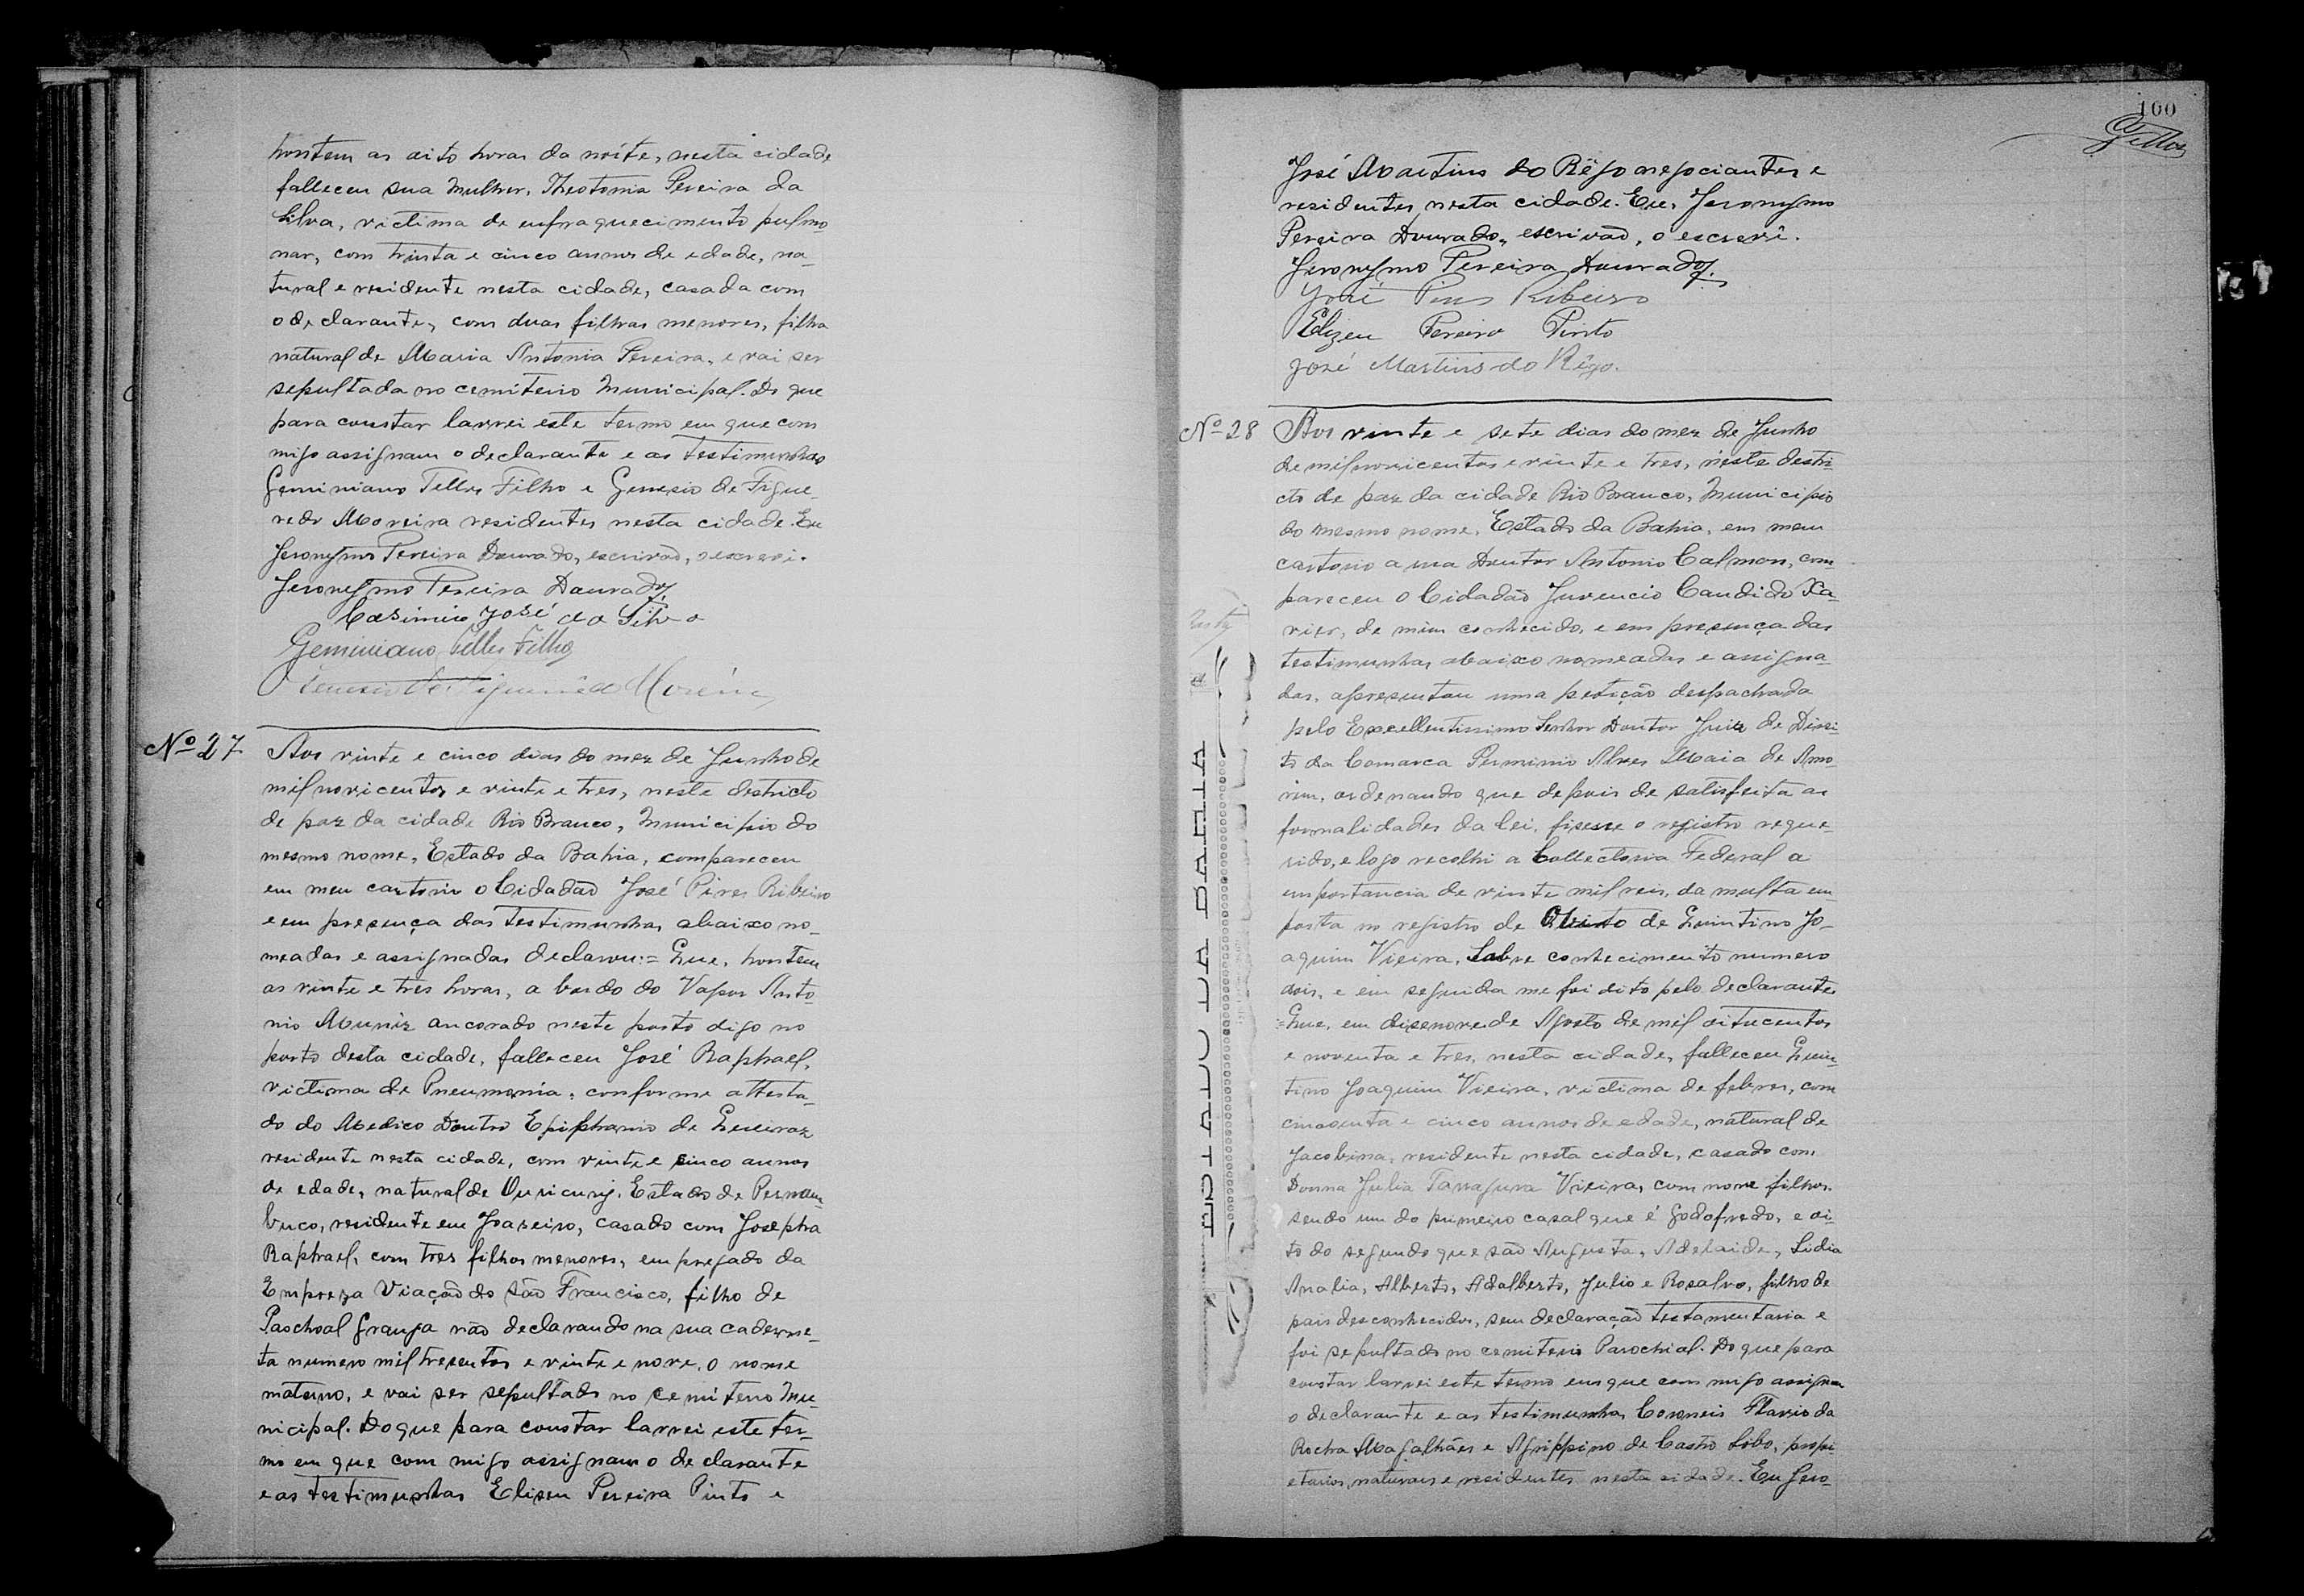 hontem as oito horas da noite, nesta cidade
falleceu sua mulher, Theotonia Pereira da
Silva, victima de enfraquecimento pulmo
nar, com trinta e cinco annos de edade, na-
tural e residente nesta cidade, casada com
o declarante, com duas filhas menores, filha
natural de Maria Antonia Pereira, e vai ser
sepultada no cemiterio Municipal. Do que
para constar lavrei este termo em que com
migo assignam o declarante e as testimunhas
Geminiano Telles Filho e Genesio de Figue-
redo Moreira residentes nesta cidade. Eu
Jeronymo Pereira Dourado, escrivaõ, o escrevi.
Jeronymo Pereira Dourado
Casimiro José da Silva
Geminiano Telles Filho
Genesio de Figueirêdo Moreira
Nº 27
Aos vinte e cinco dias do mez de Junho de
mil novicentos e vinte e tres, neste districto
de paz da cidade Rio Branco, Municipio do
mesmo nome, Estado da Bahia, compareceu
em meu cartorio o Cidadaõ José Pires Ribeiro
e em presença das testimunhas abaixo no-
meadas e assignadas declarou:= Que, hontem
as vinte e tres horas, a bordo do Vapor Anto
nio Muniz ancorado neste porto digo no
porto desta cidade, falleceu José Raphael,
victima de Pneumonia, conforme attesta-
do do Medico Doutro Epiphanio de Queiroz
residente nesta cidade, com vinte e cinco annos
de edade, natural de Ouricury, Estado de Pernam
buco, residente em Joazeiro, casado com Josepha
Raphael, com tres filhos menores, empregado da
Empreza Viação do São Francisco, filho de
Paschoal Granja não declarando na sua caderne-
ta numero mil tresentos e vinte e nove, o nome
materno, e vai ser sepultado no cemiterio Mu-
nicipal. Do que para constar lavrei este ter-
mo em que com migo assignam o declarante
e as testimunhas Eliseu Pereira Pinto e
100
Telles
José Martins do Rêgo negociantes e
residentes nesta cidade. Eu, Jeronymo
Pereira Dourado, escrivaõ, o escreví.
Jeronymo Pereira Dourado
José Pires Ribeiro
Elizeu Pereira Pinto
José Martins do Rêgo.
Nº 28
Aos vinte e sete dias do mez de Junho
de mil novicentos e vinte e tres, neste destri-
cto de paz da cidade Rio Branco, Municipio
do mesmo nome, Estado da Bahia, em meu
cartorio a rua Doutor Antonio Calmon, com-
pareceu o Cidadão Juvencio Candido Xa-
vier, de mim conhecido, e em presença das
testimunhas abaixo nomeadas e assigna-
das, apresentou uma petição despachada
pelo Excellentissimo Senhor Doutor Juiz de Direi-
to da Comarca Perminio Alves Maia de Amo-
rim, ordenando que depois de satisfeita as
formalidades da lei, fisesse o registro reque-
rido, e logo recolhi a Collectoria Federal a
importancia de vinte mil reis, da multa im
posta no registro de Obito de Quintino Jo-
aquim Vieira, sobre conhecimento numero
dois, e em seguida me foi dito pelo declarante
=Que, em disenove de Agosto de mil oitucentos
e noventa e tres, nesta cidade, falleceu Quin-
tino Joaquim Vieira, victima de febres, com
cincoenta e cinco annos de edade, natural de
Jacobina, residente nesta cidade, casado com
Donna Julia Vieira, com nove filhos
sendo um do primeiro casal que é Godofredo, e oi-
to do segundo que são Augusta, Adelaide, Lidia
Analia, Alberto, Adalberto, Julio e Rosalvo, filho de
pais desconhecidos, sem declaração testamentaria e
foi sepultado no cemiterio Parochial. Do que para
constar lavrei este termo em que com migo assignam
o declarante e as testimunhas Coroneis Flavio da
Rocha Magalhães e Agrippino de Castro Lobo, propri
etarios, naturais e residentes nesta cidade. Eu Jero-